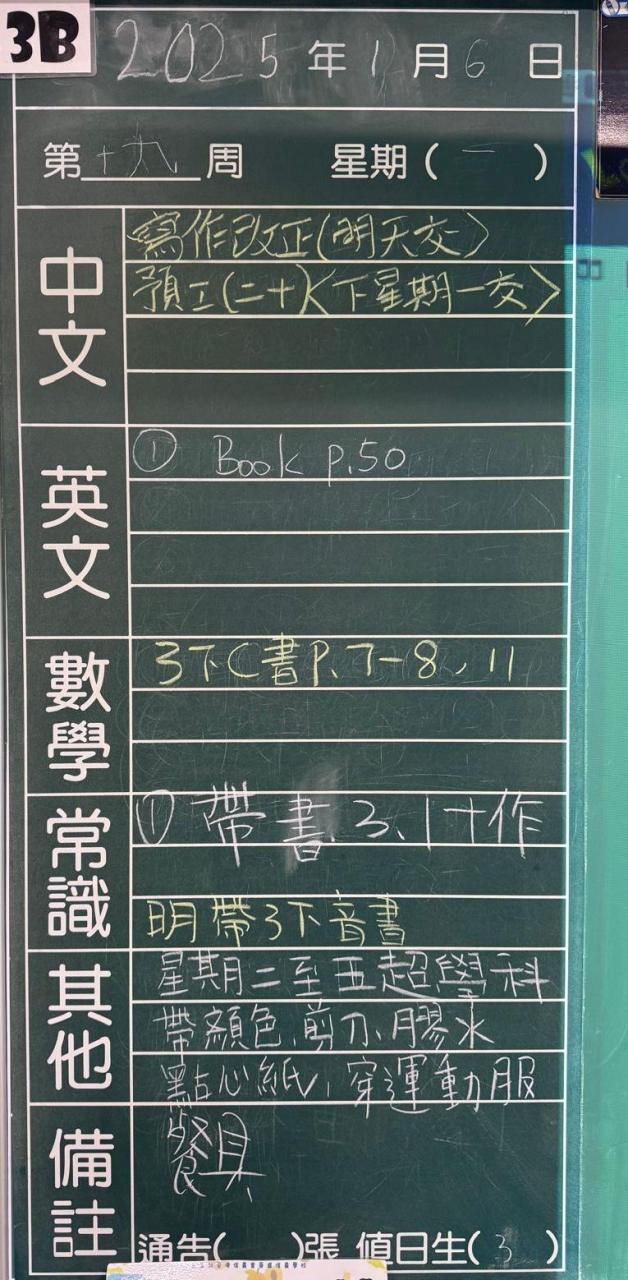 3B
2025年1月6日
第十九周 星期(一)
中文
寫作改正(明天交)
預工(二十)(下星期一交)
英文
① Book p.50
數學
3下C書P.7-8, 11
常識
① 帶書3.1+作
明帶3下音書
其他
星期二至五超學科
帶顏色、剪刀、膠水
點心紙,穿運動服
備註
餐具
通告( )張 值日生(3)